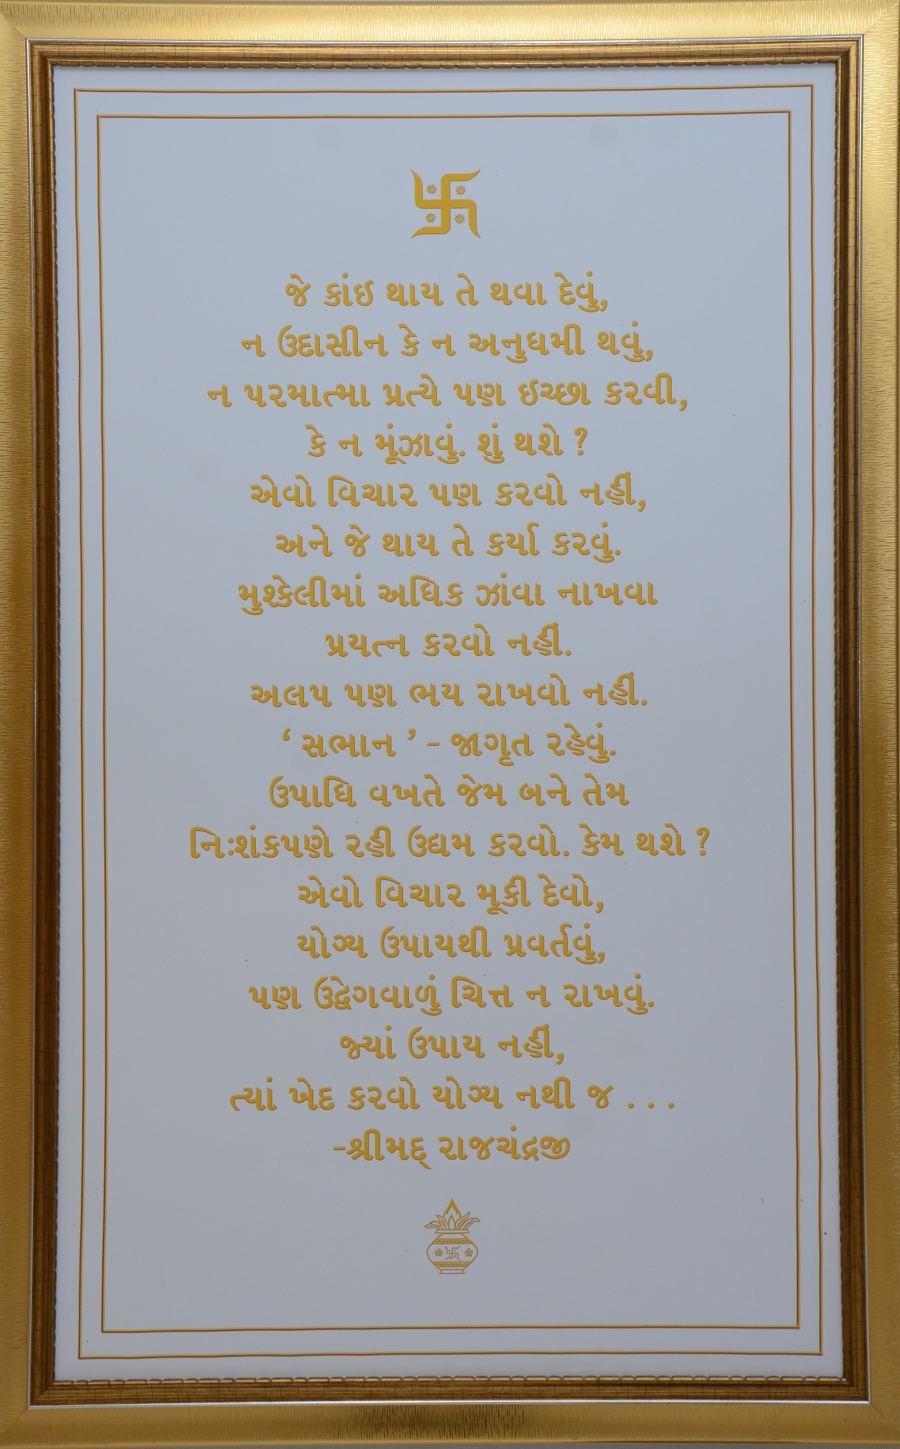 જે કાંઇ થાય તે થવા દેવું,
ન ઉદાસીન કે ન અનુધમી થવું,
ન પરમાત્મા પ્રત્યે પણ ઇચ્છા કરવી,
કે ન મૂંઝાવું. શું થશે ?
એવો વિચાર પણ કરવો નહીં,
અને જે થાય તે કર્યા કરવું.
મુશ્કેલીમાં અધિક ઝાંવા નાખવા
પ્રયત્ન કરવો નહીં.
અલપ પણ ભય રાખવો નહીં.
‘ સભાન ’ - જાગૃત રહેવું.
ઉપાધિ વખતે જેમ બને તેમ
નિઃશંકપણે રહી ઉદ્યમ કરવો. કેમ થશે ?
એવો વિચાર મૂકી દેવો,
યોગ્ય ઉપાયથી પ્રવર્તવું,
પણ ઉદ્વેગવાળું ચિત્ત ન રાખવું.
જ્યાં ઉપાય નહીં,
ત્યાં ખેદ કરવો યોગ્ય નથી જ . . .
-શ્રીમદ્ રાજચંદ્રજી